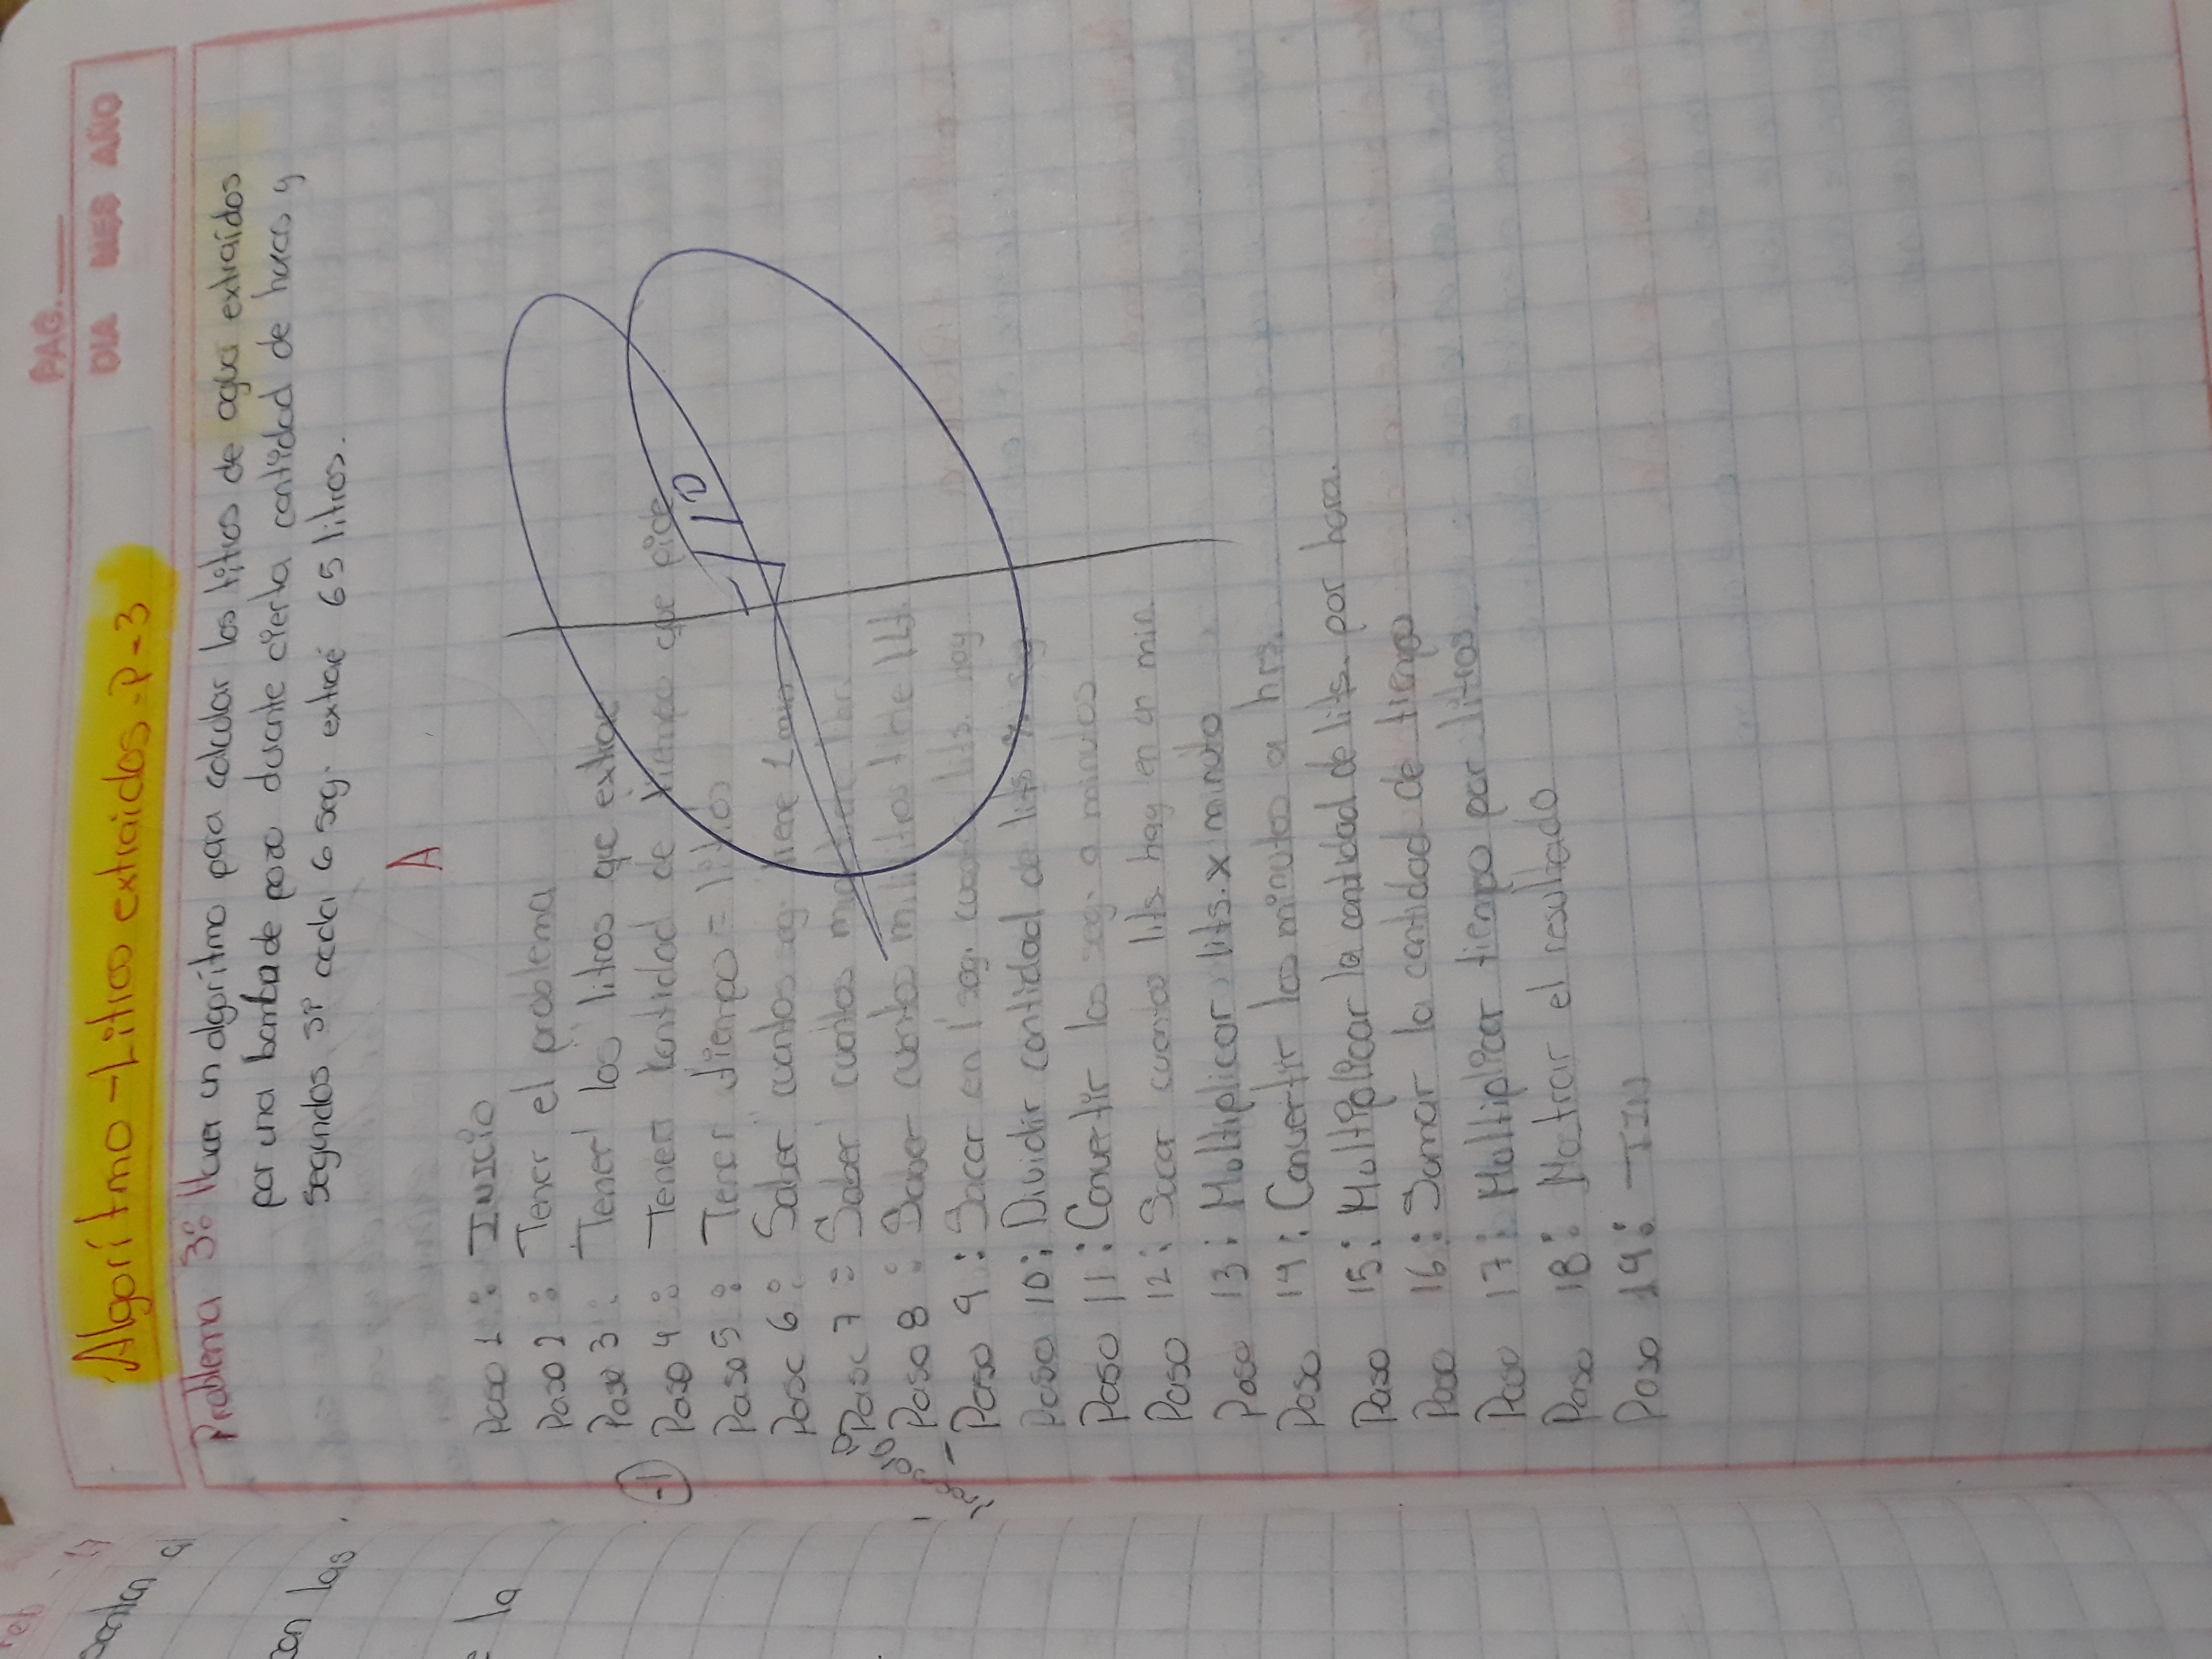 PAG.
DIA MES AÑO
Algorítmo - Litros extraidos - P - 3
Problema 3: Hacer un algorítmo para calcular los litros de agua extraídos
por una bomba de pozo durante cierta cantidad de horas y
segundos si cada 6 seg. extraé 65 litros.
A
Paso 1: INICIO
Paso 2: Tener el problema
Paso 3: Tener los litros que extrae
-1
Paso 4: Tener cantidad de tiempo que pide
Paso 5: Tener tiempo = litros
-10
Paso 6: Saber cuantos seg. tiene 1 min
Paso 7: Saber cuantos min tiene 1 hr.
Paso 8: Saber cuantos mililitros tiene 1 Lt.
Paso 9: Sacar en 1 seg. cuantos lits. hay
Paso 10: Dividir cantidad de lits % seg.
Paso 11: Convertir los seg. a minutos
Paso 12: Sacar cuantos lits. hay en un min.
Paso 13: Multiplicar lits. x minuto
Paso 14: Convertir los minutos a hrs.
Paso 15: Multiplicar la cantidad de lits. por hora.
Paso 16: Sumar la cantidad de tiempo
Paso 17: Multiplicar tiempo por litros
Paso 18: Mostrar el resultado
Paso 19: FIN
con las
la